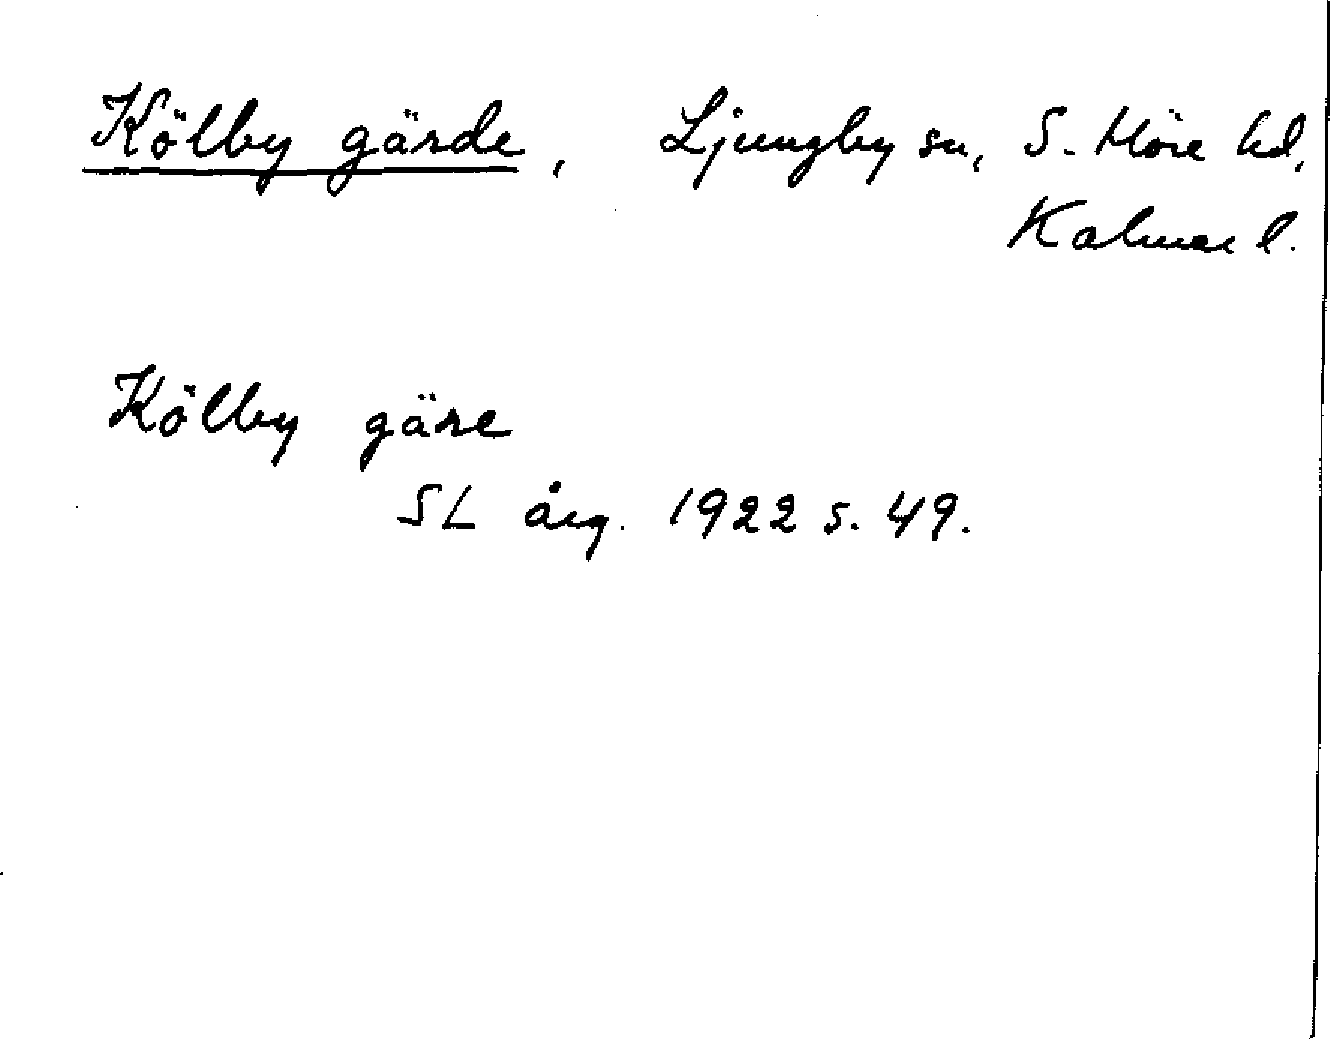 Kölby gärde, Ljungby sn, S. Möre hd,
Kalmar l.
Kölby gäre
SL årg. 1922 s. 49.